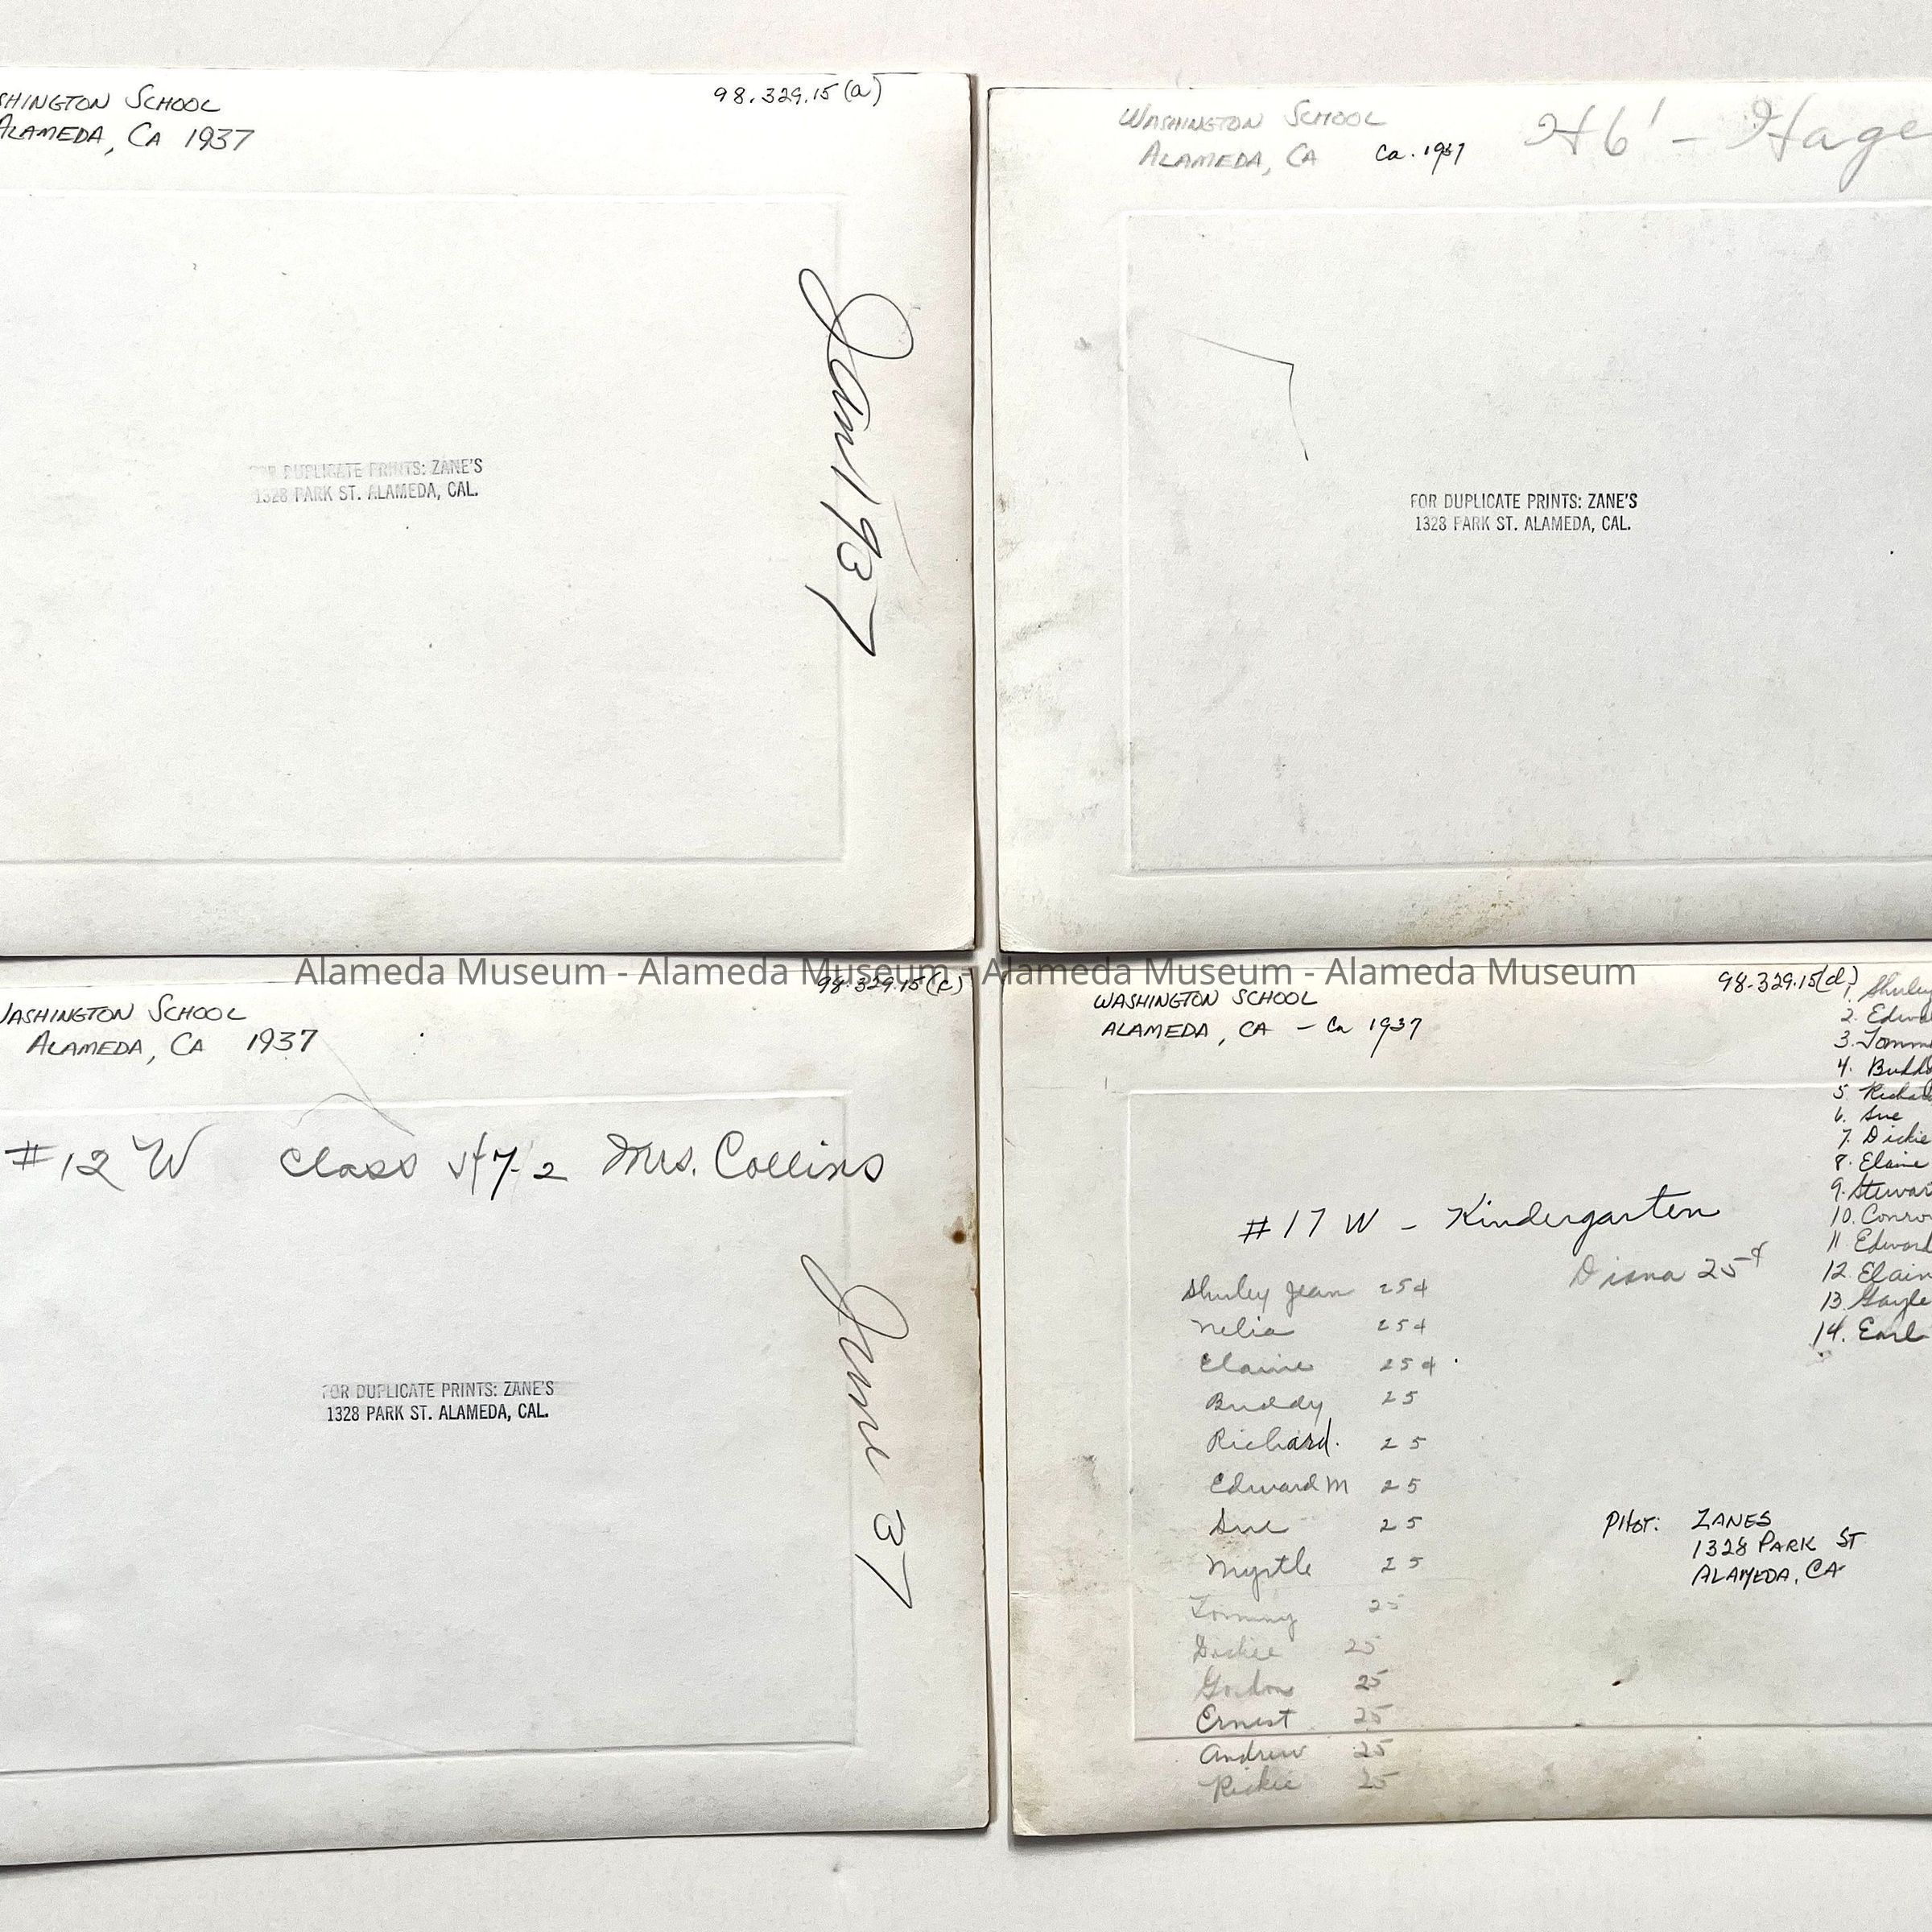 SHINGTON SCHOOL
ALAMEDA, CA 1937
98.329.15(a)
Jan 1937
FOR DUPLICATE PRINTS: ZANE'S
1328 PARK ST. ALAMEDA, CAL.
WASHINGTON SCHOOL
ALAMEDA, CA ca. 1937
H6' - Hage
FOR DUPLICATE PRINTS: ZANE'S
1328 PARK ST. ALAMEDA, CAL.
Alameda Museum - Alameda Museum - Alameda Museum - Alameda Museum
98.329.15(c)
WASHINGTON SCHOOL
ALAMEDA, CA 1937
#12 W Class Mrs. Collins
June 37
FOR DUPLICATE PRINTS: ZANE'S
1328 PARK ST. ALAMEDA, CAL.
98-329.15(d)
WASHINGTON SCHOOL
ALAMEDA, CA - Ca 1937
1. Shirley
2. Edwa
3. Tomm
4. Budd
5 Richa
6. Sue
7. Dickie
8. Elaine
9. Stewar
10. Conro
11 Edward
12. Elain
13. Gayle
14. Earl
#17 W - Kindergarten
Diana 25¢
Shirley Jean 25¢
Nelia 25¢
Elaine 25¢
Buddy 25
Richard. 25
Edward M 25
Sue 25
Myrtle 25
Tommy 25
Dickie 25
Gordon 25
Ernest 25
Andrew 25
Rickie 25
PHOT: ZANES
1328 PARK ST
ALAMEDA, CA